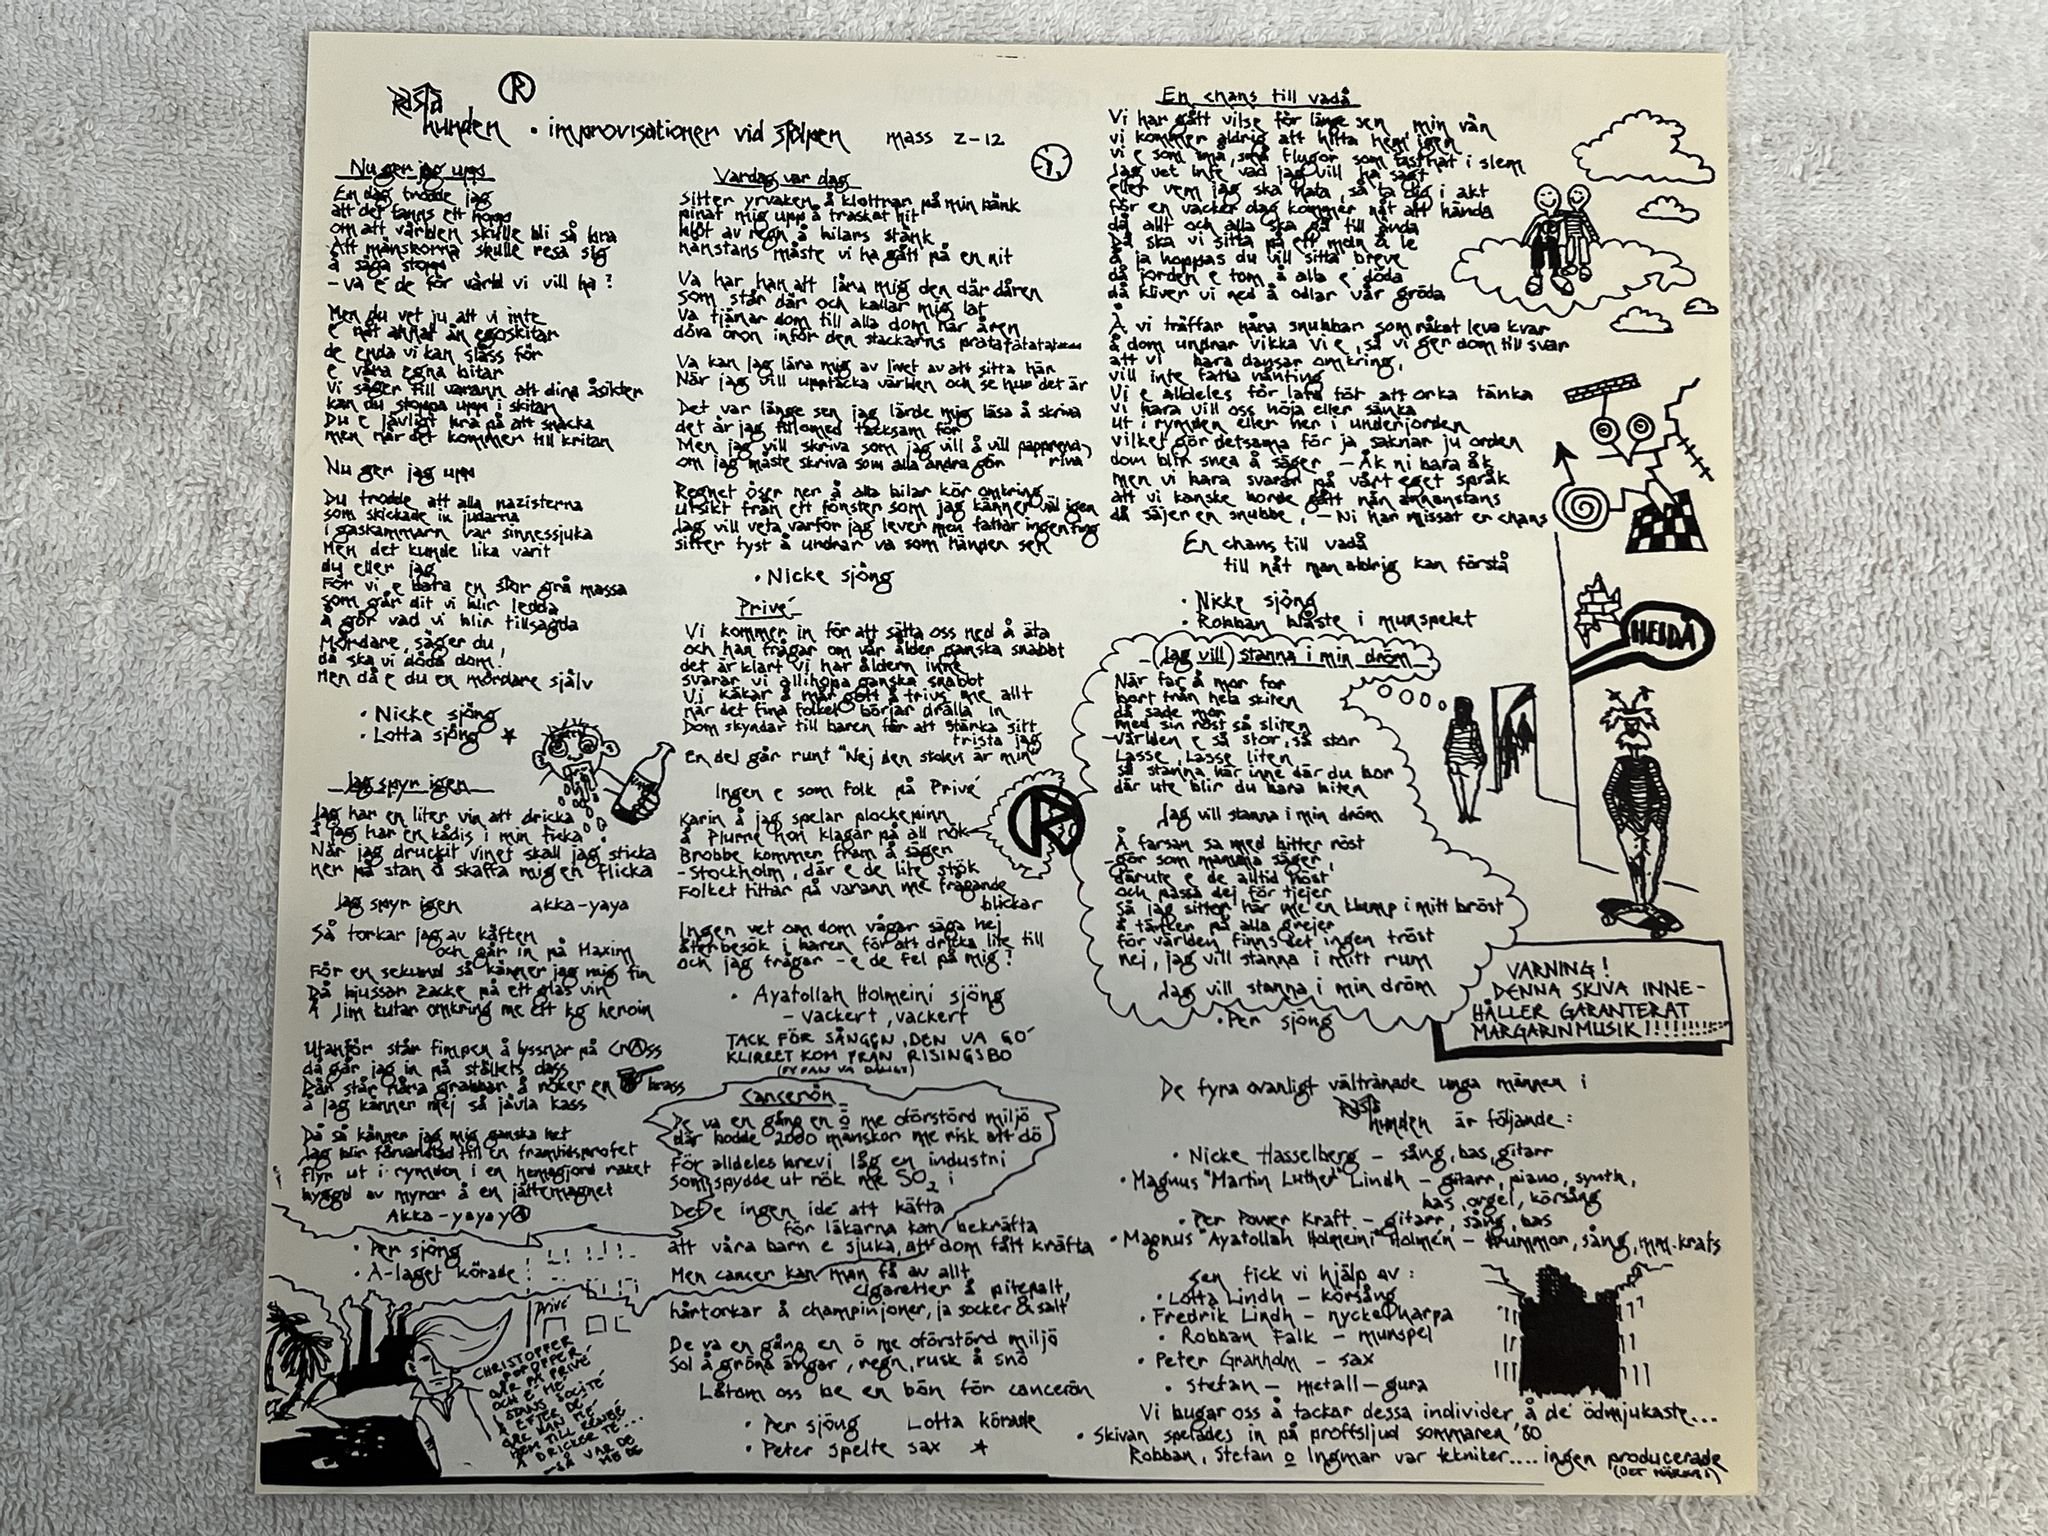 Rasta hunden • improvisationer vid stolpen mass Z-12
Nu ger jag upp
En dag trodde jag
att det fanns ett hopp
om att världen skulle bli så bra
Att mänskorna skulle resa sig
å säga stopp
- va e de för värld vi vill ha?
Men du vet ju att vi inte
e nåt annat än egoskitar
de enda vi kan slåss för
e våra egna bitar
Vi säger till varann att dina åsikter
kan du stoppa upp i skiten
Du e jävligt bra på att snacka
men när det kommer till kritan
Nu ger jag upp
Du trodde att alla nazisterna
som skickade in judarna
i gaskammarn var sinnessjuka
Men det kunde lika varit
du eller jag
För vi e bara en stor grå massa
som går dit vi blir ledda
å gör vad vi blir tillsagda
Mördare, säger du,
då ska vi döda dom.
Men då e du en mördare själv
• Nicke sjöng
• Lotta sjöng *
Jag spyr igen
Jag har en liter vin att dricka
å jag har en kådis i min ficka
När jag druckit vinet skall jag sticka
ner på stan å skaffa mig en flicka
Jag spyr igen akka-yaya
Så torkar jag av käften
och går in på Maxim
För en sekund så känner jag mig fin
Då bjussar Zacke på ett glas vin
Å Jim kutar omkring me ett kg heroin
Utanför står fimpen å lyssnar på Crass
då går jag in på ställets dass
Där står nåra grabbar å röker en brass
å jag känner mej så jävla kass
Då så känner jag mig ganska het
Jag blir förvandlad till en framtidsprofet
flyr ut i rymden i en hemagjord raket
byggd av myror å en jättemagnet
Akka-yayaya
• Per sjöng
• A-laget körade
Privé
CHRISTOPPER
POPOPPER
GÅR PÅ PRIVÉ
OCH E ME
I STANS SOCITÉ
Å EFTER DE
GÅR HAN ME
HEM TILL
Å DRICKER TE...
- SÅ VAR DE
ME DE
Vardag var dag
Sitter yrvaken å klottrar på min bänk
pinat mig upp å traskat hit
blöt av regn å bilars stänk
nånstans måste vi ha gått på en nit
Va har han att lära mig den där dåren
som står där och kallar mig lat
Va tjänar dom till alla dom här åren
döva öron inför den stackarns pratatatatat
Va kan jag lära mig av livet av att sitta här
När jag vill upptäcka världen och se hur det är
Det var länge sen jag lärde mig läsa å skriva
det är jag tillomed tacksam för
Men jag vill skriva som jag vill å vill papprena riva
om jag måste skriva som alla andra gör
Regnet öser ner å alla bilar kör omkring
utsikt från ett fönster som jag känner väl igen
Jag vill veta varför jag lever men fattar ingenting
sitter tyst å undrar va som händer sen
• Nicke sjöng
Privé
Vi kommer in för att sätta oss ned å äta
och han frågar om vår ålder ganska snabbt
det är klart vi har åldern inne
svarar vi allihopa ganska snabbt
Vi käkar å mår gott å trivs me allt
när det fina folket börjar drälla in
Dom skyndar till baren för att stärka sitt
trista jag
En del går runt "Nej den stolen är min"
Ingen e som folk på Privé
Karin å jag spelar plockepinn
å Plurne hon klagar på all rök
Brobbe kommer fram å säger
- Stockholm, där e de lite stök
Folket tittar på varann me frågande
blickar
Ingen vet om dom vågar säga hej
återbesök i baren för att dricka lite till
och jag frågar - e de fel på mig?
• Ayatollah Holmeini sjöng
- vackert, vackert
TACK FÖR SÅNGEN, DEN VA GO
KLIRRET KOM FRÅN RISINGSBO
(FY FAN VA DÅLIGT)
Cancerön
De va en gång en ö me oförstörd miljö
där bodde 2000 mänskor me risk att dö
För alldeles brevi låg en industri
som spydde ut rök me SO2 i
Det e ingen idé att käfta
för läkarna kan bekräfta
att våra barn e sjuka, att dom fått kräfta
Men cancer kan man få av allt
cigaretter å pitepalt,
hårtorkar å champinjoner, ja socker & salt
De va en gång en ö me oförstörd miljö
Sol å gröna ängar, regn, rusk å snö
Låtom oss be en bön för cancerön
• Per sjöng Lotta körade
• Peter spelte sax *
En chans till vadå
Vi har gått vilse för länge sen, min vän
vi kommer aldrig att hitta hem igen
vi e som små, små flugor som fastnat i slem
Jag vet inte vad jag vill ha sagt
eller vem jag ska hata, så ta dig i akt
för en vacker dag kommer nåt att hända
då allt och alla ska gå till ända
Då ska vi sitta på ett moln å le
å ja hoppas du vill sitta breve
då jorden e tom å alla e döda
då kliver vi ned å odlar vår gröda
Å vi träffar nåra snubbar som råkat leva kvar
å dom undrar vikka vi e, så vi ger dom till svar
att vi bara dansar omkring,
vill inte fatta nånting
Vi e alldeles för lata för att orka tänka
vi bara vill oss höja eller sänka
ut i rymden eller ner i underjorden
vilket gör detsamma för ja saknar ju orden
dom blir snea å säger - Åk ni bara åk
men vi bara svarar på vårt eget språk
att vi kanske borde gått nån annanstans
då säjer en snubbe, - Ni har missat er chans
En chans till vadå
till nåt man aldrig kan förstå
• Nicke sjöng
• Robban blåste i munspelet
HEJDÅ
Jag vill stanna i min dröm
När far å mor for
bort från hela skiten
då sade mor
med sin röst så sliten
- världen e så stor, så stor
Lasse, Lasse liten
så stanna här inne där du bor
där ute blir du bara biten
Jag vill stanna i min dröm
Å farsan sa med bitter röst
- gör som mamma säger,
därute e de alltid höst
och passa dej för tjejer
Så jag sitter här me en klump i mitt bröst
å tänker på alla grejer
för världen finns det ingen tröst
nej, jag vill stanna i mitt rum
Jag vill stanna i min dröm
• Per sjöng
VARNING!
DENNA SKIVA INNE-
HÅLLER GARANTERAT
MARGARINMUSIK!!!!!!!!!!
De fyra ovanligt vältränade unga männen i
Rasta hunden är följande:
• Nicke Hasselberg - sång, bas, gitarr
• Magnus "Martin Luther" Lindh - gitarr, piano, synth,
bas, orgel, körsång
• Per Power Kraft - gitarr, sång, bas
• Magnus "Ayatollah Holmeini" Holmén - trummor, sång, mm. krafs
Sen fick vi hjälp av:
• Lotta Lindh - körsång
• Fredrik Lindh - nyckelharpa
• Robban Falk - munspel
• Peter Granholm - sax
• Stefan - metall-gura
Vi bugar oss å tackar dessa individer å de ödmjukaste...
• Skivan spelades in på proffsljud sommaren '80
Robban, Stefan o Ingmar var tekniker.... ingen producerade
(DET MÄRKS!)